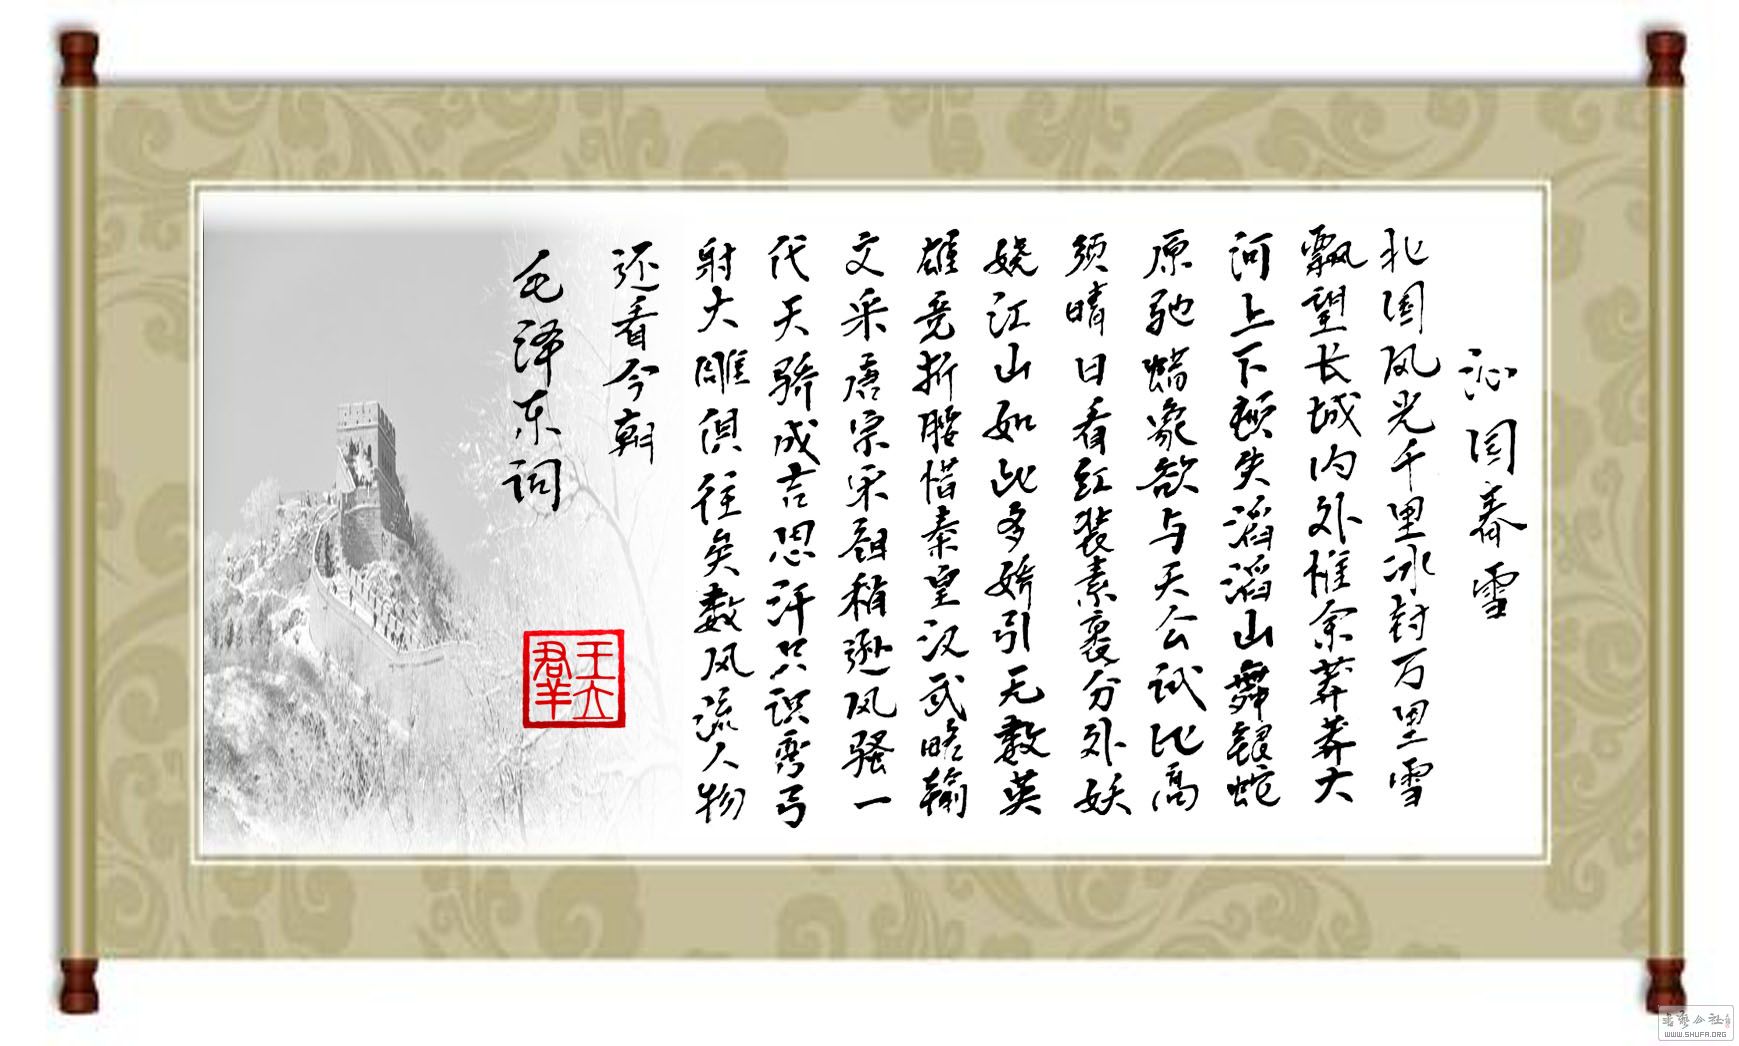 沁园春雪
北国风光千里冰封万里雪
飘望长城内外惟余莽莽大
河上下顿失滔滔山舞银蛇
原驰蜡象欲与天公试比高
须晴日看红装素裹分外妖
娆江山如此多娇引无数英
雄竞折腰惜秦皇汉武略输
文采唐宗宋祖稍逊风骚一
代天骄成吉思汗只识弯弓
射大雕俱往矣数风流人物
还看今朝
毛泽东词
王立羣
WWW.SHUFA.ORG